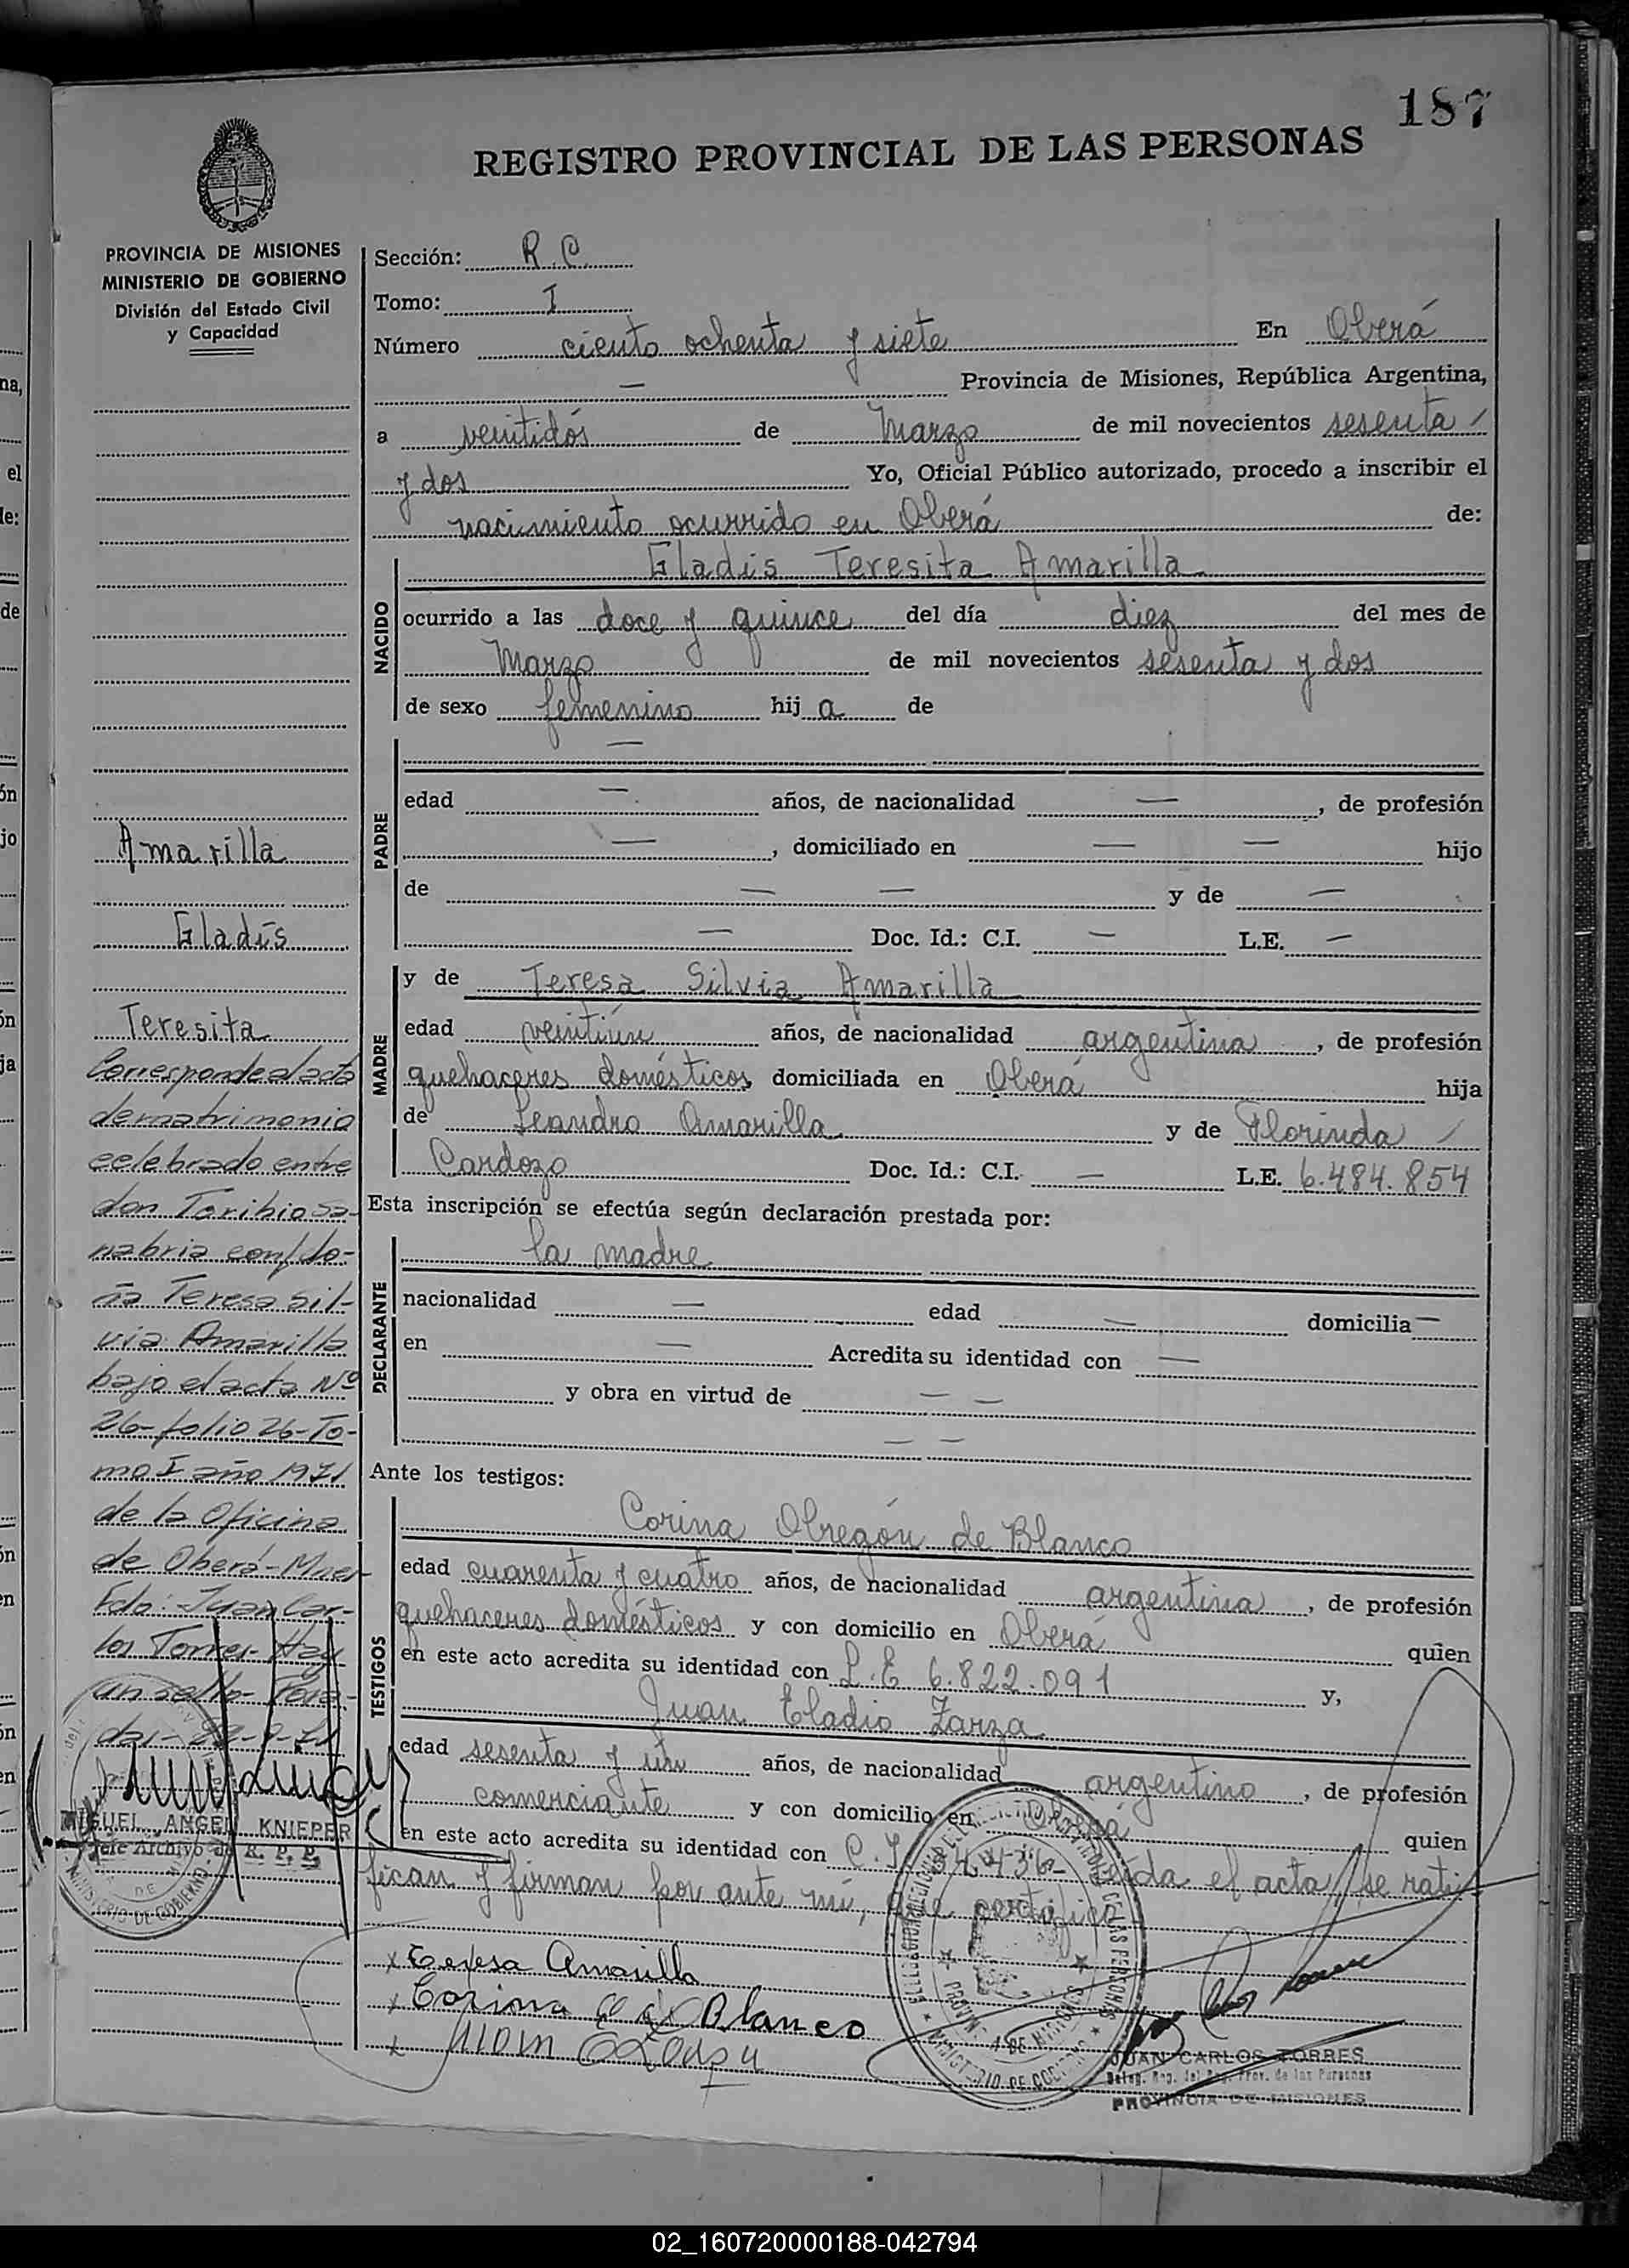 187
REGISTRO PROVINCIAL DE LAS PERSONAS
PROVINCIA DE MISIONES
MINISTERIO DE GOBIERNO
División del Estado Civil
y Capacidad
Sección: R.C.
Tomo: I
Número ciento ochenta y siete En Oberá
— Provincia de Misiones, República Argentina,
a veintidós de Marzo de mil novecientos sesenta /
y dos Yo, Oficial Público autorizado, procedo a inscribir el
nacimiento ocurrido en Oberá de:
NACIDO
Gladis Teresita Amarilla
ocurrido a las doce y quince del día diez del mes de
Marzo de mil novecientos sesenta y dos
de sexo femenino hij a de
PADRE
—
edad — años, de nacionalidad — , de profesión
— , domiciliado en — — hijo
de — — y de —
— Doc. Id.: C.I. — L.E. —
MADRE
y de Teresa Silvia Amarilla
edad veintiún años, de nacionalidad argentina , de profesión
quehaceres domésticos, domiciliada en Oberá hija
de Leandro Amarilla y de Florinda /
Cardozo Doc. Id.: C.I. — L.E. 6.484.854
Esta inscripción se efectúa según declaración prestada por:
DECLARANTE
la madre
nacionalidad — edad — domicilia —
en — Acredita su identidad con —
y obra en virtud de — —
— —
Ante los testigos:
TESTIGOS
Corina Obregón de Blanco
edad cuarenta y cuatro años, de nacionalidad argentina , de profesión
quehaceres domésticos y con domicilio en Oberá quien
en este acto acredita su identidad con L.E 6.822.091 y,
Juan Eladio Zarza
edad sesenta y un años, de nacionalidad argentino , de profesión
comerciante y con domicilio en Oberá quien
en este acto acredita su identidad con C.I. Leída el acta, se rati-
fican y firman por ante mí, que certifico
x Teresa Amarilla
x Corina de Blanco
x
JUAN CARLOS TORRES
Deleg. Reg. del Reg. Prov. de las Personas
PROVINCIA DE MISIONES
Amarilla
Gladis
Teresita
Corresponde al acta
de matrimonio
celebrado entre
don Toribio Sa-
nabria con do-
ña Teresa Sil-
via Amarilla
bajo el acta Nº
26-folio 26-To-
mo I año 1971
de la Oficina
de Oberá-Mnes-
Fdo: Juan Car-
los Torres-Hay
un sello-
MIGUEL ANGEL KNIEPER
Jefe Archivo de R. P. P.
MINISTERIO DE GOBIERNO
na,
el
de:
de
ón
jo
ón
ja
ón
en
ón
en
02_160720000188-042794